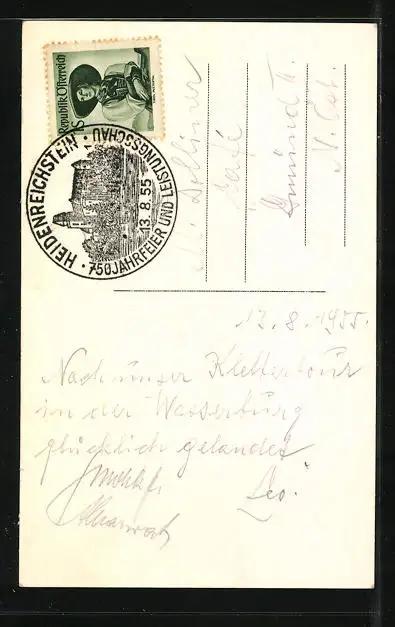 Republik Österreich
HEIDENREICHSTEIN
750 JAHRFEIER UND LEISTUNGSSCHAU
13.8.55
Dollinger
Café
Gmünd II.
N. Öst.
13.8.1955.
Nach unser Klettertour
in der Wasserburg
glücklich gelandet
Leo.